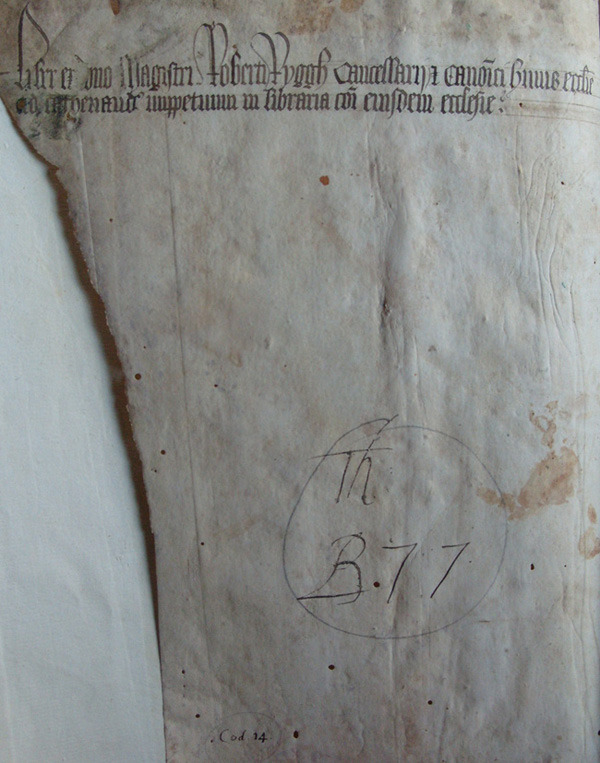 Liber ex dono Magistri Roberti Rygge Cancellarij & canonici huius ecclie
ad cathenand imppetuum in libraria coi eiusdem ecclesie :
Th
B. 77
. Cod. 14